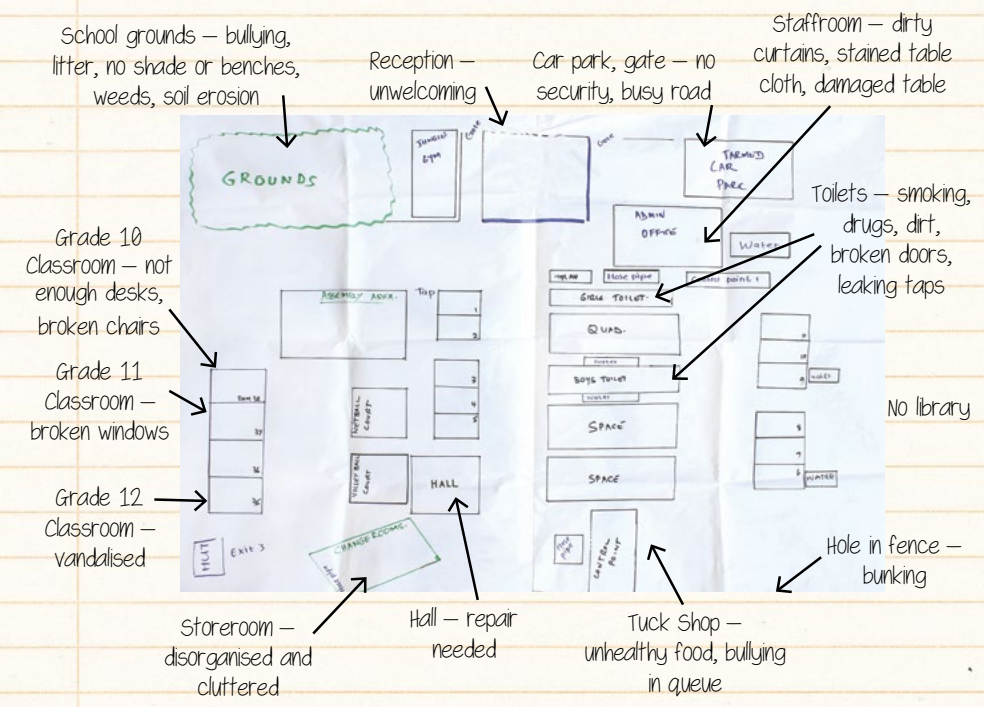 School grounds – bullying,
litter, no shade or benches,
weeds, soil erosion
Reception –
unwelcoming
Car park, gate – no
security, busy road
Staffroom – dirty
curtains, stained table
cloth, damaged table
Toilets – smoking,
drugs, dirt,
broken doors,
leaking taps
Grade 10
Classroom – not
enough desks,
broken chairs
Grade 11
Classroom –
broken windows
Grade 12
Classroom –
vandalised
No library
Hole in fence –
bunking
Storeroom –
disorganised and
cluttered
Hall – repair
needed
Tuck Shop –
unhealthy food, bullying
in queue
GROUNDS
GYM
CAR
ADMIN
OFFICE
Water
Hose pipe
point 1
GIRLS TOILET
ASSEMBLY AREA
Tap
1
2
QUAD
Water
BOYS TOILET
Water
SPACE
SPACE
3
4
NETBALL
COURT
VOLLEY BALL
COURT
HALL
WATER
CHANGEROOMS
HUT
Exit 3
CONTROL
POINT